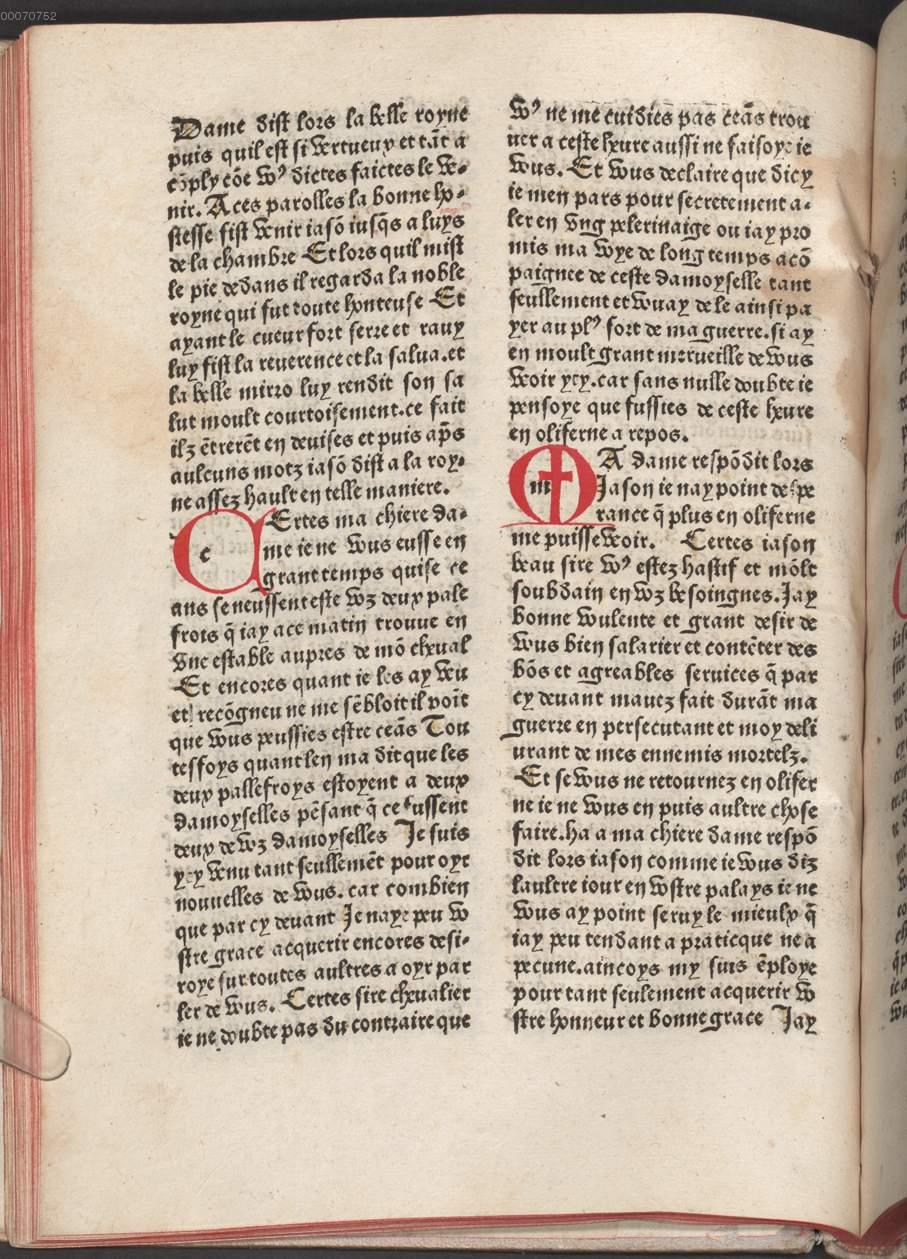 00070752
Dame dist lors la belle royne
puis quil est si vertueux et tāt a
cōply cōe voꝰ dictes faictes le ve-
nir. A ces parolles la bonne ho-
stesse fist venir iasō iusq̄s a luys
de la chambre Et lors quil mist
le pie dedans il regarda la noble
royne qui fut toute honteuse Et
ayant le cueur fort serre et rauy
luy fist la reuerence et la salua. et
la belle mirro luy rendit son sa
lut moult courtoisement. ce fait
ilz ētrerēt en deuises et puis ap̄s
aulcuns motz iasō dist a la roy-
ne assez hault en telle maniere.
c Ertes ma chiere da-
me ie ne vous eusse en
grant temps quise ce
ans se neussent este voz deux pale
frois q̄ iay a ce matin trouue en
vne estable aupres de mō cheual
Et encores quant ie les ay veu
et recōgneu ne me sēbloit il poīt
que vous peussies estre ceās Tou
tesfoys quant len ma dit que les
deux pallefroys estoyent a deux
damoyselles pēsant q̄ ce fussent
deux de voz damoyselles Je suis
ycy venu tant seullemēt pour oyr
nouuelles de vous. car combien
que par cy deuant Je naye peu vo
stre grace acquerir encores desi-
roye sur toutes aultres a oyr par
ler de vous. Certes sire cheualier
ie ne doubte pas du contraire que
voꝰ ne me cuidies pas ceās trou
uer a ceste heure aussi ne faisoye ie
vous. Et vous declaire que dicy
ie men pars pour secretement a-
ler en vng pelerinaige ou iay pro
mis ma voye de long temps acō
paignee de ceste damoyselle tant
seullement et vuay de le ainsi pa
yer au plꝰ fort de ma guerre. si ay
en moult grant merueille de vous
veoir ycy. car sans nulle doubte ie
pensoye que fussies de ceste heure
en oliferne a repos.
m A dame respōdit lors
Jason ie nay point despe
rance q̄ plus en oliferne
me puisse veoir. Certes iason
beau sire voꝰ estez hastif et mōlt
soubdain en voz besoingnes. Jay
bonne vulente et grant desir de
vous bien salarier et contēter des
bōs et agreables seruices q̄ par
cy deuant mauez fait durāt ma
guerre en persecutant et moy deli
urant de mes ennemis mortelz.
Et se vous ne retournez en olifer
ne ie ne vous en puis aultre chose
faire. ha a ma chiere dame respō
dit lors iason comme ie vous diz
laultre iour en vostre palays ie ne
vous ay point seruy le mieulx q̄
iay peu tendant a praticque ne a
pecune. aincoys my suis ēploye
pour tant seulement acquerir vo
stre honneur et bonne grace Jay